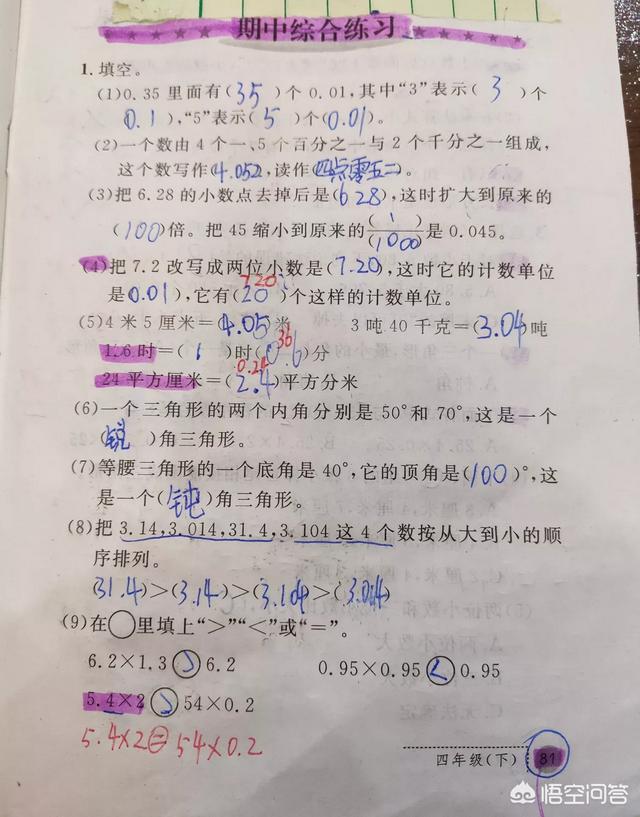 期中综合练习
1.填空。
(1)0.35里面有(35)个0.01,其中“3”表示(3)个
0.1),“5”表示(5)个(0.01)。
(2)一个数由4个一、5个百分之一与2个千分之一组成,
这个数写作(4.052),读作(四点零五二)。
(3)把6.28的小数点去掉后是(628),这时扩大到原来的
(100)倍。把45缩小到原来的(1)/(1000)是0.045。
(4)把7.2改写成两位小数是(7.20),这时它的计数单位
720
是(0.01),它有(20)个这样的计数单位。
(5)4米5厘米=(4.05)米 3吨40千克=(3.04)吨
36
1.6时=(1)时(0.6)分
0.24
24平方厘米=(2.4)平方分米
(6)一个三角形的两个内角分别是50°和70°,这是一个
(锐)角三角形。
(7)等腰三角形的一个底角是40°,它的顶角是(100)°,这
是一个(钝)角三角形。
(8)把3.14,3.014,31.4,3.104这4个数按从大到小的顺
序排列。
(31.4)>(3.14)>(3.104)>(3.014)
(9)在○里填上“>”“<”或“=”。
6.2×1.3>6.2 0.95×0.95<0.95
5.4×2>54×0.2
5.4×2=54×0.2
四年级(下) 81
悟空问答